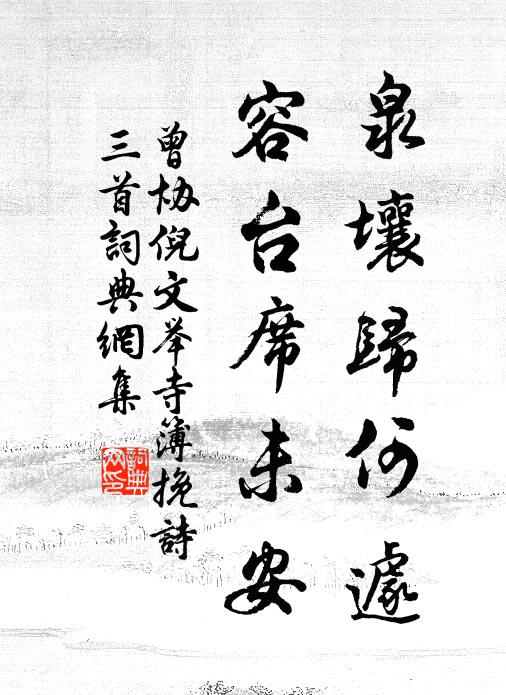 泉壤歸何遽
容台席未安
曾协倪文举寺簿挽詩
三首詞典網集
詞典網印